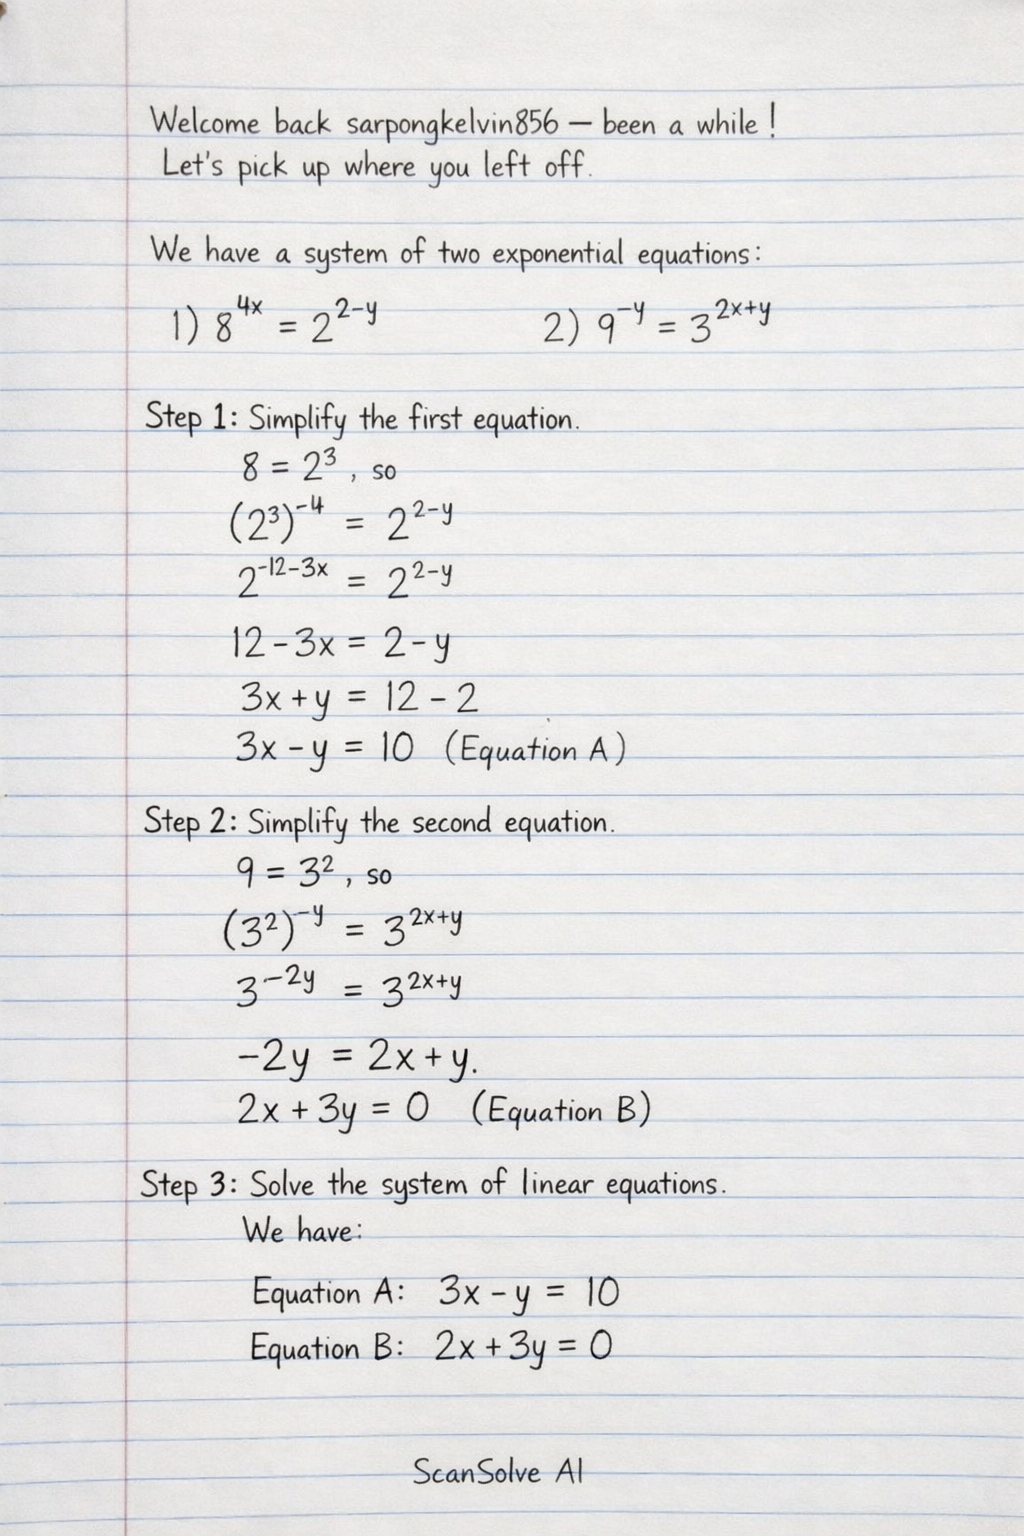 Welcome back sarpongkelvin856 — been a while!
Let's pick up where you left off.
We have a system of two exponential equations:
1) 8^{4x} = 2^{2-y} 2) 9^{-y} = 3^{2x+y}
Step 1: Simplify the first equation.
8 = 2^3, so
(2^3)^{-4} = 2^{2-y}
2^{-12-3x} = 2^{2-y}
12 - 3x = 2 - y
3x + y = 12 - 2
3x - y = 10 (Equation A)
Step 2: Simplify the second equation.
9 = 3^2, so
(3^2)^{-y} = 3^{2x+y}
3^{-2y} = 3^{2x+y}
-2y = 2x + y.
2x + 3y = 0 (Equation B)
Step 3: Solve the system of linear equations.
We have:
Equation A: 3x - y = 10
Equation B: 2x + 3y = 0
ScanSolve AI